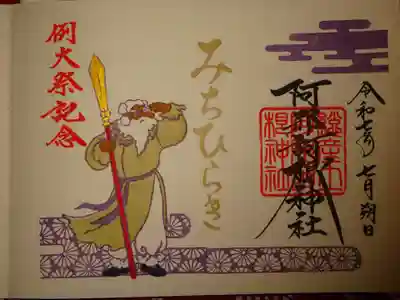 令和七年 七月朔日
阿邪訶根神社
みちひらき
例大祭記念